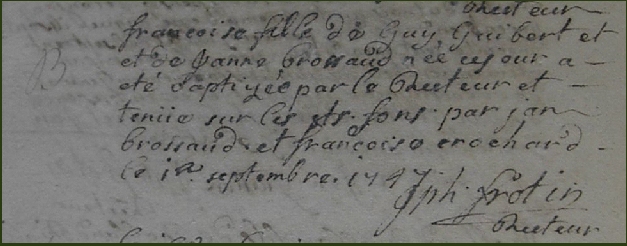 Recteur
B
françoise fille de Guy Guibert et
et de janne brossaud née ce jour a
eté baptizée par le Recteur et
tenüe sur les sts. fons par jan
brossaud et françoise crochard
le 1er septembre 1747
Jph. frotin
Recteur